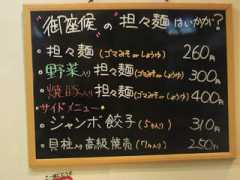 御座候の担々麺はいかが?
・担々麺(ゴマみそorしょうゆ) 260円
・野菜入り担々麺(ゴマみそorしょうゆ) 300円
・焼豚入り担々麺(ゴマみそorしょうゆ) 400円
サイドメニュー
・ジャンボ餃子(5ヶ入り) 310円
・貝柱入り高級焼売(7ヶ入り) 250円